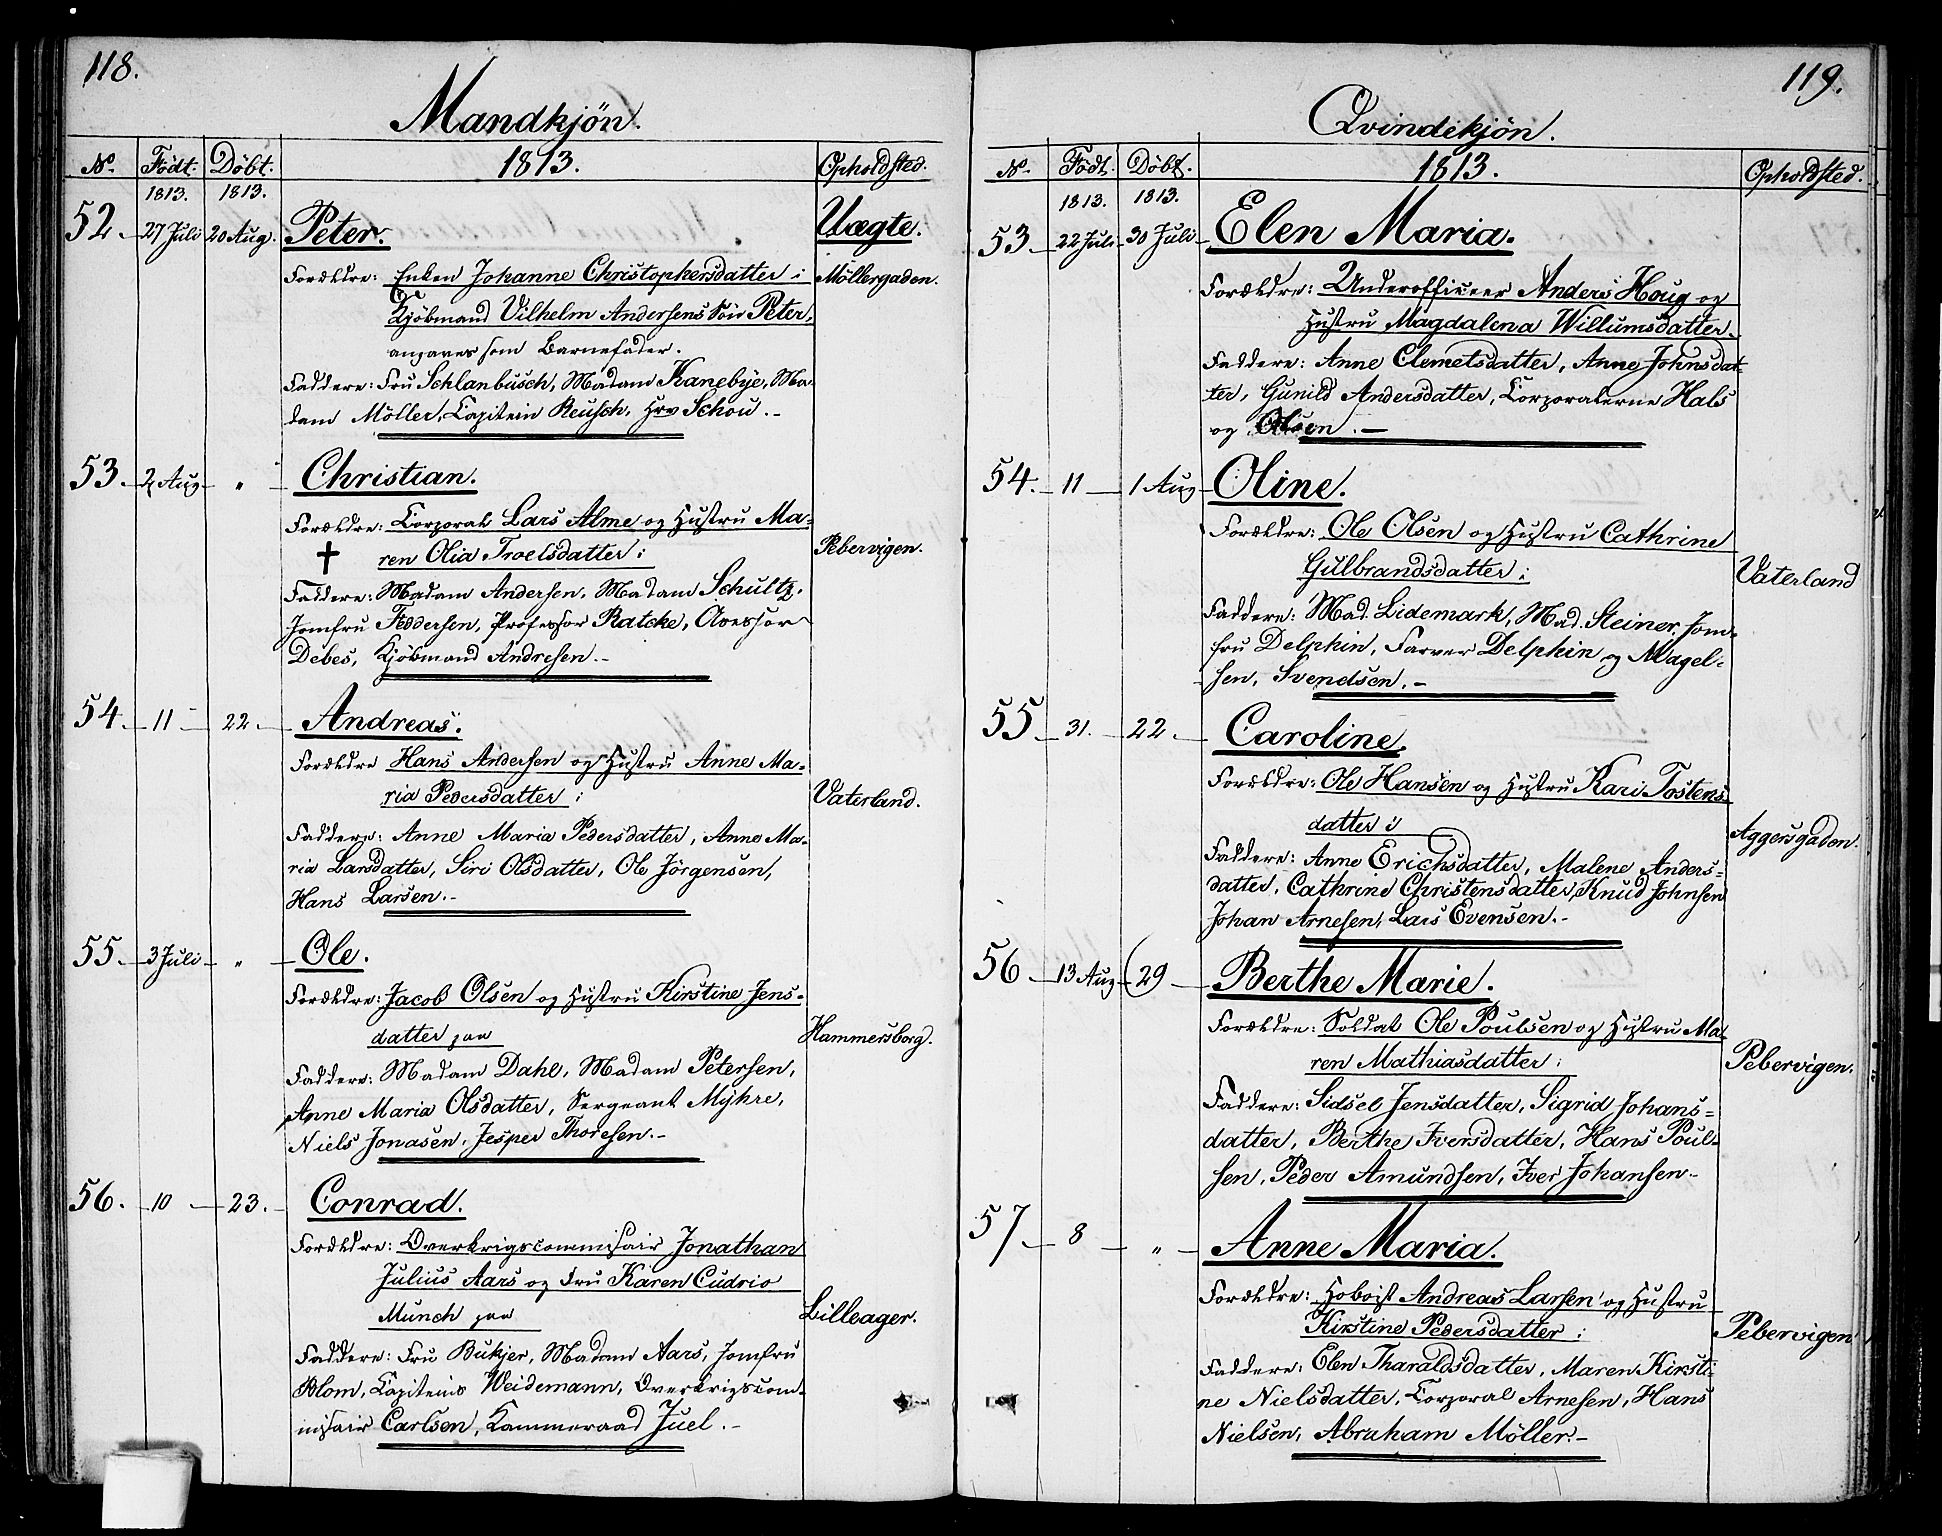 118.
Mandkjön.
No. Födt. Döbt. 1813. Opholdsted.
1813. 1813.
52. 27 Juli 20 Aug. Peter. Uægte.
Forældre: Enken Johanne Christophersdatter i Möllergaden.
Kjöbmand Vilhelm Andersens Sön Peter,
angaves som Barnefader.
Faddere: Fru Schlanbusch, Madam Kanebye, Ma-
dam Möller, Capitein Reusch, Hrr Schou.-
53. 2 Aug " Christian.
Forældre: Corporal Lars Alme og Hustru Ma-
† ren Olia Troelsdatter i Pebervigen.
Faddere: Madam Andersen, Madam Schultz,
Jomfru Feddersen, Professor Ratcke, Assessor
Debes, Kjöbmand Andresen.-
54. 11 22 Andreas.
Forældre Hans Andersen og Hustru Anne Ma-
ria Pedersdatter i Vaterland.
Faddere: Anne Maria Pedersdatter, Anne Ma-
ria Larsdatter, Siri Olsdatter, Ole Jörgensen,
Hans Larsen.-
55. 3 Juli " Ole.
Forældre: Jacob Olsen og Hustru Kirstine Jens-
datter paa Hammersborg.
Faddere: Madam Dahl, Madam Petersen,
Anne Maria Olsdatter, Sergeant Myhre,
Niels Jonasen, Jesper Thoresen.-
56. 10 23. Conrad.
Forældre: Overkrigscommissair Jonathan
Julius Aars og Fru Karen Cudrio
Munch paa Lilleager.
Faddere: Fru Bukjer, Madam Aars, Jomfru
Blom, Capiteins Weidemann, Overkrigscom-
missair Carlsen, Kammeraad Juel.-
119.
Qvindekjön.
No. Födt. Döbt. 1813. Opholdsted.
1813. 1813.
53. 22 Juli 30 Juli Elen Maria.
Forældre: Underofficeer Anders Houg og
Hustru Magdalena Willumsdatter.
Faddere: Anne Clemetsdatter, Anne Johnsdat-
ter, Gunild Andersdatter, Corporalerne Hals
og Olsen.-
54. 11 1 Aug Oline.
Forældre: Ole Olsen og Hustru Cathrine
Gulbrandsdatter i Vaterland
Faddere: Mad. Lidemark, Mad. Steiner, Jom-
fru Delphin, Farver Delphin og Magel-
sen, Svendsen.-
55 31. 22. Caroline.
Forældre: Ole Hansen og Hustru Kari Tostens-
datter i Aggersgaden.
Faddere: Anne Erichsdatter, Malene Anders-
datter, Cathrine Christensdatter, Knud Johnsen
Johan Arnesen, Lars Evensen.-
56 13 Aug (29 Berthe Marie.
Forældre: Soldat Ole Poulsen og Hustru Ma-
ren Mathiasdatter i Pebervigen.
Faddere: Sidsel Jensdatter, Sigrid Johans-
datter, Berthe Iversdatter, Hans Poul-
sen, Peder Amundsen, Iver Johansen.-
57 8 " Anne Maria.
Forældre: Hoboist Andreas Larsen og Hustru
Kirstine Pedersdatter i Pebervigen
Faddere: Elen Tharaldsdatter, Maren Kirsti-
ne Nielsdatter, Corporal Arnesen, Hans
Nielsen, Abraham Möller.-